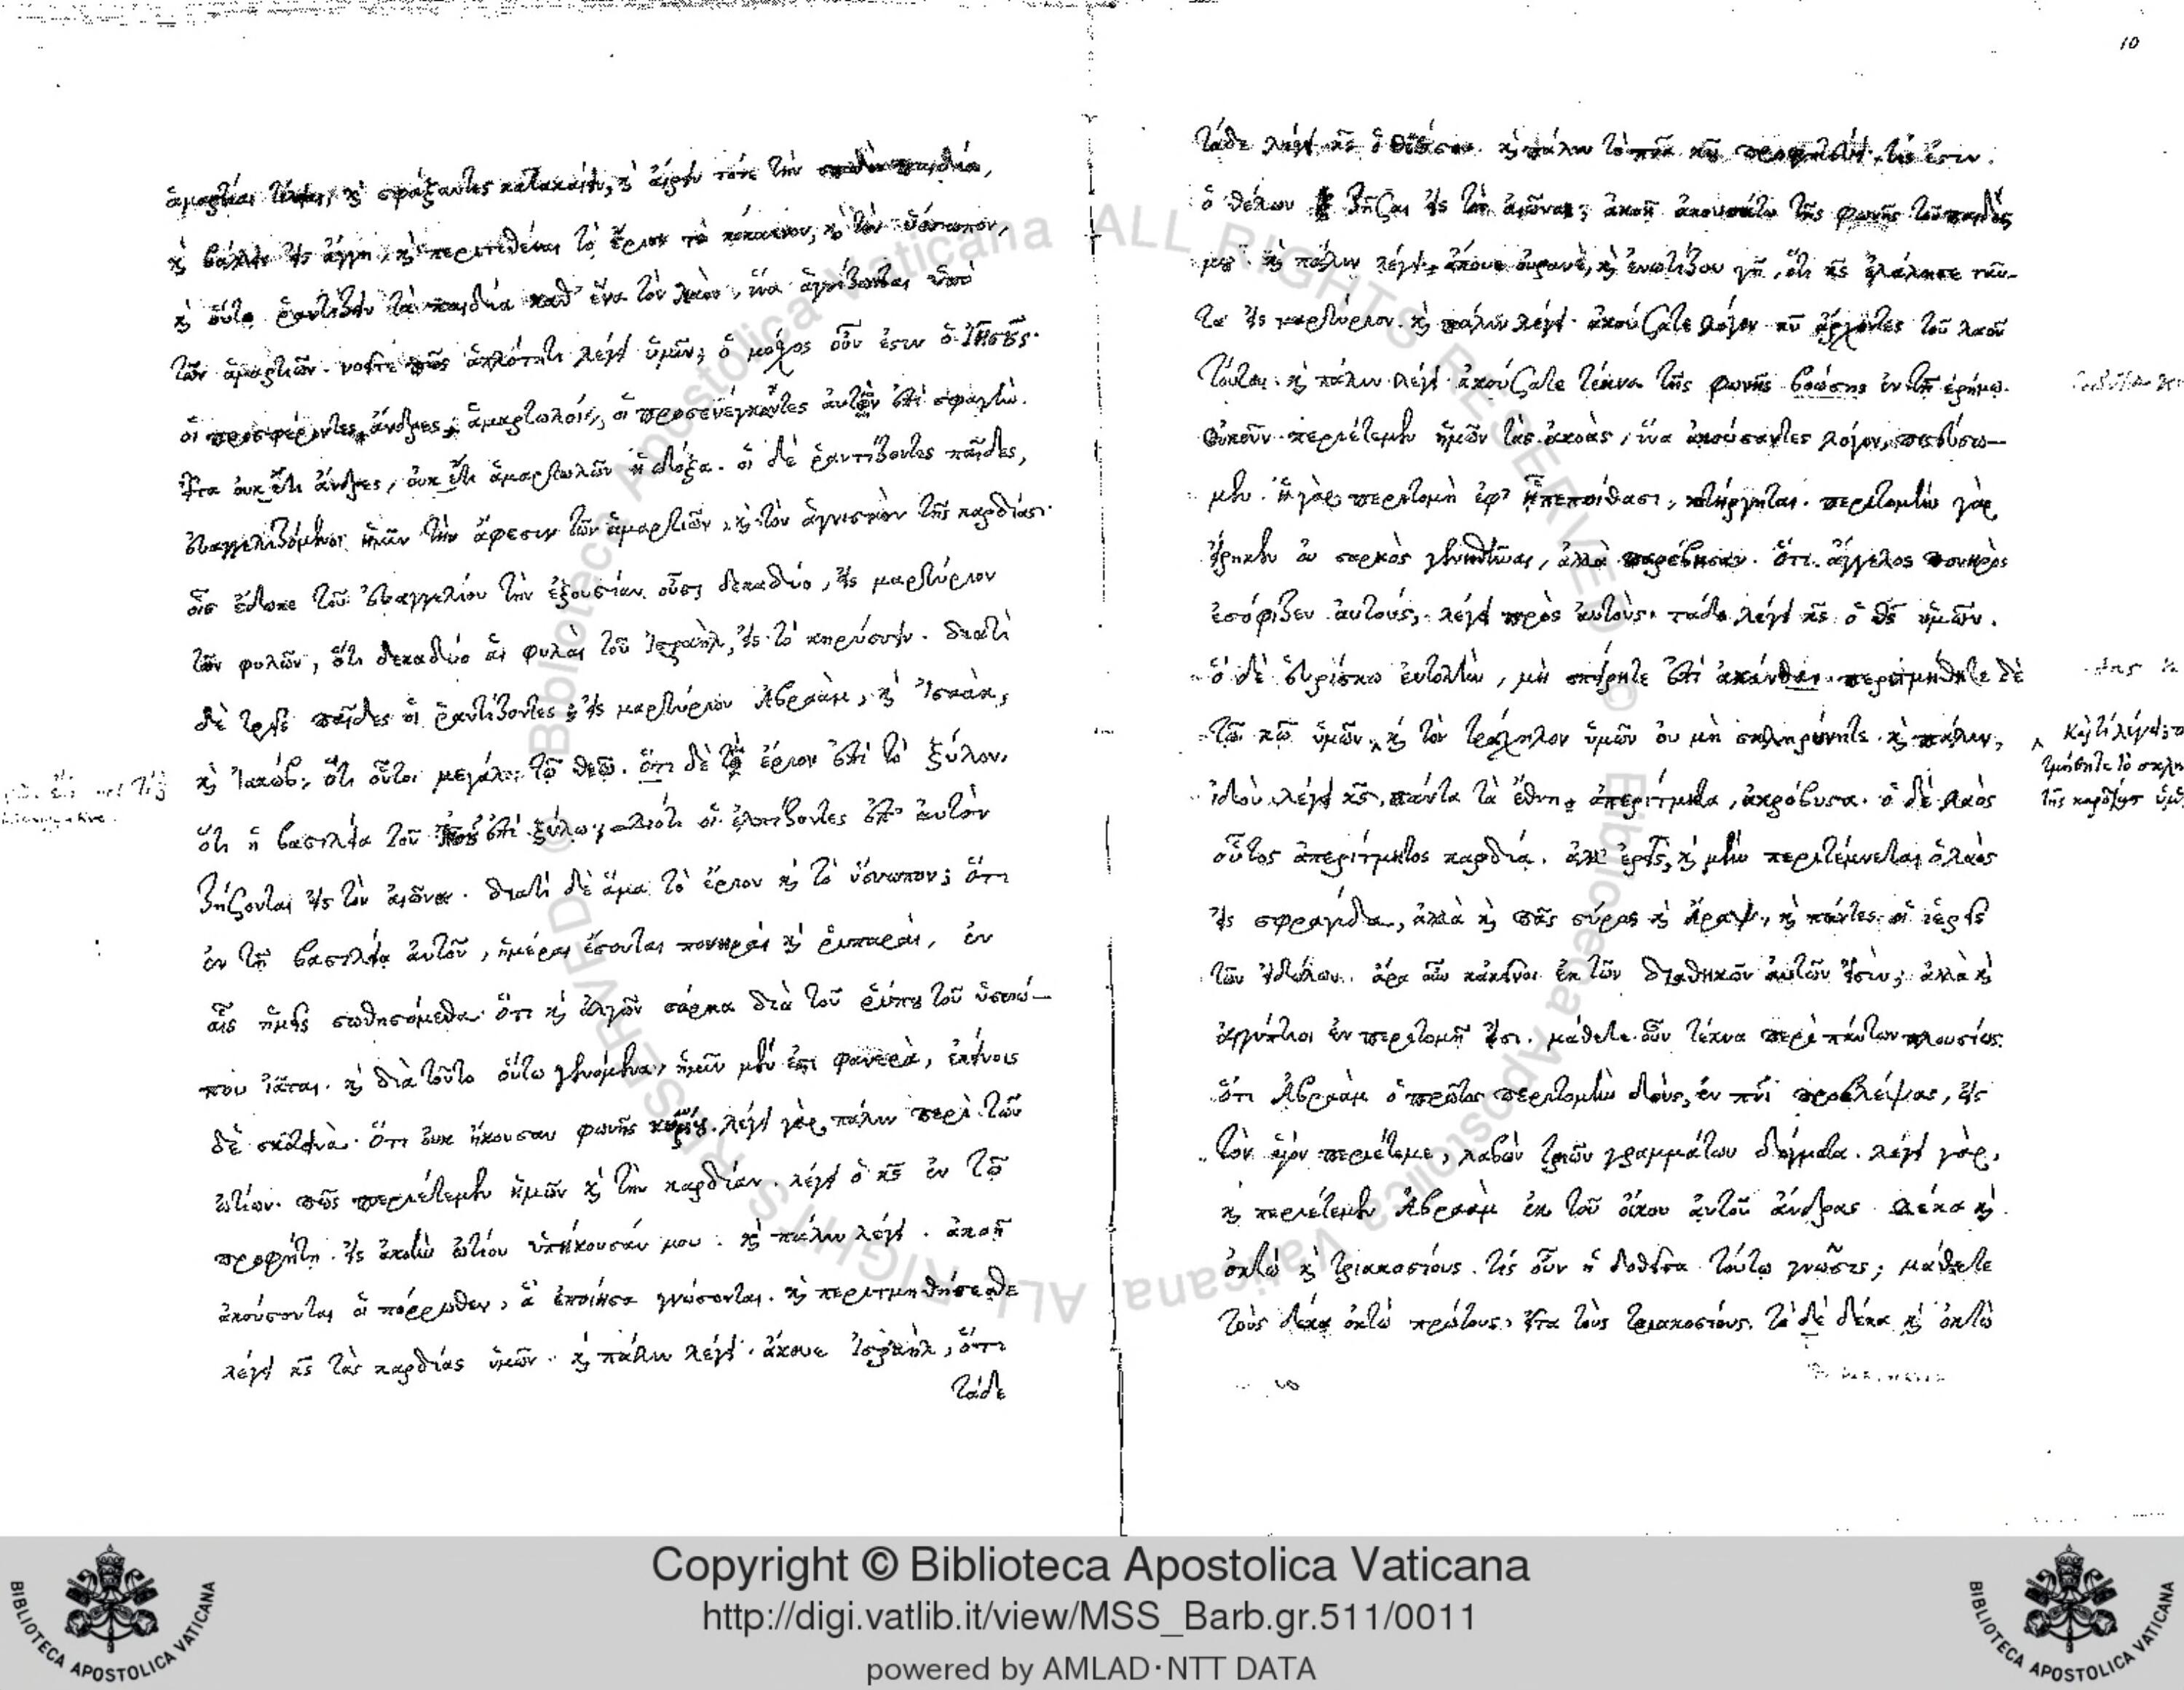 ἁμαρτίαι τέλειαι, κὶ σφάξαντες κατακαίειν, κὶ αἴρειν τότε τὴν σποδὸν παιδία,
κὶ βάλλειν εἰς ἄγγη, κὶ περιτιθέναι τὸ ἔριον τὸ κόκκινον, κὶ τὸν ὕσσωπον,
κὶ οὕτω ῥαντίζειν τὰ παιδία καθ' ἕνα τὸν λαὸν, ἵνα ἁγνίζωνται ὑπὸ
τῶν ἁμαρτιῶν. νοεῖτε πῶς ἁπλότητι λέγει ὑμῖν; ὁ μόσχος οὖν ἐστιν ὁ Ἰησοῦς.
οἱ προσφέροντες ἄνδρες ἁμαρτωλοὶ, οἱ προσενέγκαντες αὐτὸν ἐπὶ σφαγήν.
εἶτα οὐκ ἔτι ἄνδρες, οὐκ ἔτι ἁμαρτωλῶν ἡ δόξα. οἱ δὲ ῥαντίζοντες παῖδες,
εὐαγγελιζόμενοι ἡμῖν τὴν ἄφεσιν τῶν ἁμαρτιῶν, κὶ τὸν ἁγνισμὸν τῆς καρδίας.
οἷς ἔδωκε τοῦ εὐαγγελίου τὴν ἐξουσίαν. οὖσι δεκαδύο, εἰς μαρτύριον
τῶν φυλῶν, ὅτι δεκαδύο αἱ φυλαὶ τοῦ Ἰσραὴλ, εἰς τὸ κηρύσσειν. διατί
δὲ τρεῖς παῖδες οἱ ῥαντίζοντες; εἰς μαρτύριον Ἀβραὰμ, κὶ Ἰσαὰκ,
κὶ Ἰακώβ· ὅτι οὗτοι μεγάλοι τῷ θεῷ. ὅτι δὲ τὸ ἔριον ἐπὶ τὸ ξύλον.
ὅτι ἡ βασιλεία τοῦ Ἰησοῦ ἐπὶ ξύλῳ· διότι οἱ ἐλπίζοντες ἐπ' αὐτὸν
ζήσονται εἰς τὸν αἰῶνα. διατί δὲ ἅμα τὸ ἔριον κὶ τὸ ὕσσωπον; ὅτι
ἐν τῇ βασιλείᾳ αὐτοῦ, ἡμέραι ἔσονται πονηραὶ κὶ ῥυπαραὶ, ἐν
αἷς ἡμεῖς σωθησόμεθα. ὅτι κὶ ἀλγῶν σάρκα διὰ τοῦ ῥύπου τοῦ ὑσσώ-
που ἰᾶται. κὶ διὰ τοῦτο οὕτω γενόμενα, ἡμῖν μέν ἐστι φανερὰ, ἐκείνοις
δὲ σκοτεινά. ὅτι οὐκ ἤκουσαν φωνῆς κυρίου. λέγει γὰρ πάλιν περὶ τῶν
ὠτίων. πῶς περιέτεμεν ἡμῶν κὶ τὴν καρδίαν. λέγει ὁ κς ἐν τῷ
προφήτῃ. εἰς ἀκοὴν ὠτίου ὑπήκουσάν μου. κὶ πάλιν λέγει. ἀκοῇ
ἀκούσονται οἱ πόρρωθεν, ἃ ἐποίησα γνώσονται. κὶ περιτμηθήσεσθε
λέγει κς τὰς καρδίας ὑμῶν. κὶ πάλιν λέγει. ἄκουε Ἰσραὴλ, ὅτι
τάδε
10
τάδε λέγει κς ὁ θεός σου. κὶ πάλιν τὸ πνα κυ προφητεύει. τίς ἐστιν
ὁ θέλων ζῆσαι εἰς τὸν αἰῶνα; ἀκοῇ ἀκουσάτω τῆς φωνῆς τοῦ παιδός
μου. κὶ πάλιν λέγει. ἄκουε οὐρανὲ, κὶ ἐνωτίζου γῆ, ὅτι κς ἐλάλησε ταῦ-
τα εἰς μαρτύριον. κὶ πάλιν λέγει. ἀκούσατε λόγον κυ ἄρχοντες τοῦ λαοῦ
τούτου. κὶ πάλιν λέγει. ἀκούσατε τέκνα τῆς φωνῆς βοώσης ἐν τῇ ἐρήμῳ.
οὐκοῦν περιέτεμεν ἡμῶν τὰς ἀκοὰς, ἵνα ἀκούσαντες λόγον, πιστεύσω-
μεν. ἡ γὰρ περιτομὴ ἐφ' ᾗ πεποίθασι, κατήργηται. περιτομὴν γὰρ
εἴρηκεν οὐ σαρκὸς γενηθῆναι, ἀλλὰ παρέβησαν. ὅτι ἄγγελος πονηρὸς
ἐσόφιζεν αὐτούς. λέγει πρὸς αὐτούς. τάδε λέγει κς ὁ θς ὑμῶν.
ὧδε εὑρίσκω ἐντολὴν, μὴ σπείρητε ἐπὶ ἀκάνθαι. περιτμήθητε δὲ
τῷ κῳ ὑμῶν, κὶ τὸν τράχηλον ὑμῶν οὐ μὴ σκληρύνητε. κὶ πάλιν,
Καὶ τί λέγει; π
τμήθητε τὸ σκλη
τῆς καρδίας ὑμῶ
ἰδοὺ λέγει κς, πάντα τὰ ἔθνη ἀπερίτμητα, ἀκρόβυστα. ὁ δὲ λαὸς
οὗτος ἀπερίτμητος καρδίᾳ. ἀλλ' ἐρεῖς, κὶ μὴν περιτέμνεται ὁ λαὸς
εἰς σφραγῖδα, ἀλλὰ κὶ πᾶς σύρος κὶ ἄραψ, κὶ πάντες οἱ ἱερεῖς
τῶν εἰδώλων. ἄρα οὖν κἀκεῖνοι ἐκ τῶν διαθηκῶν αὐτῶν εἰσίν; ἀλλὰ κὶ
αἰγύπτιοι ἐν περιτομῇ εἰσι. μάθετε οὖν τέκνα περὶ πάντων πλουσίως.
ὅτι Ἀβραὰμ ὁ πρῶτος περιτομὴν δοὺς, ἐν πνι προβλέψας, εἰς
τὸν υἱὸν περιέτεμε, λαβὼν τριῶν γραμμάτων δόγματα. λέγει γὰρ,
κὶ περιέτεμεν Ἀβραὰμ ἐκ τοῦ οἴκου αὐτοῦ ἄνδρας δέκα κὶ
ὀκτὼ κὶ τριακοσίους. τίς οὖν ἡ δοθεῖσα τούτῳ γνῶσις; μάθετε
τοὺς δέκα ὀκτὼ πρώτους, εἶτα τοὺς τριακοσίους. τὸ δὲ δέκα κὶ ὀκτὼ
Copyright © Biblioteca Apostolica Vaticana
http://digi.vatlib.it/view/MSS_Barb.gr.511/0011
powered by AMLAD·NTT DATA
BIBLIOTECA APOSTOLICA VATICANA
BIBLIOTECA APOSTOLICA VATICANA